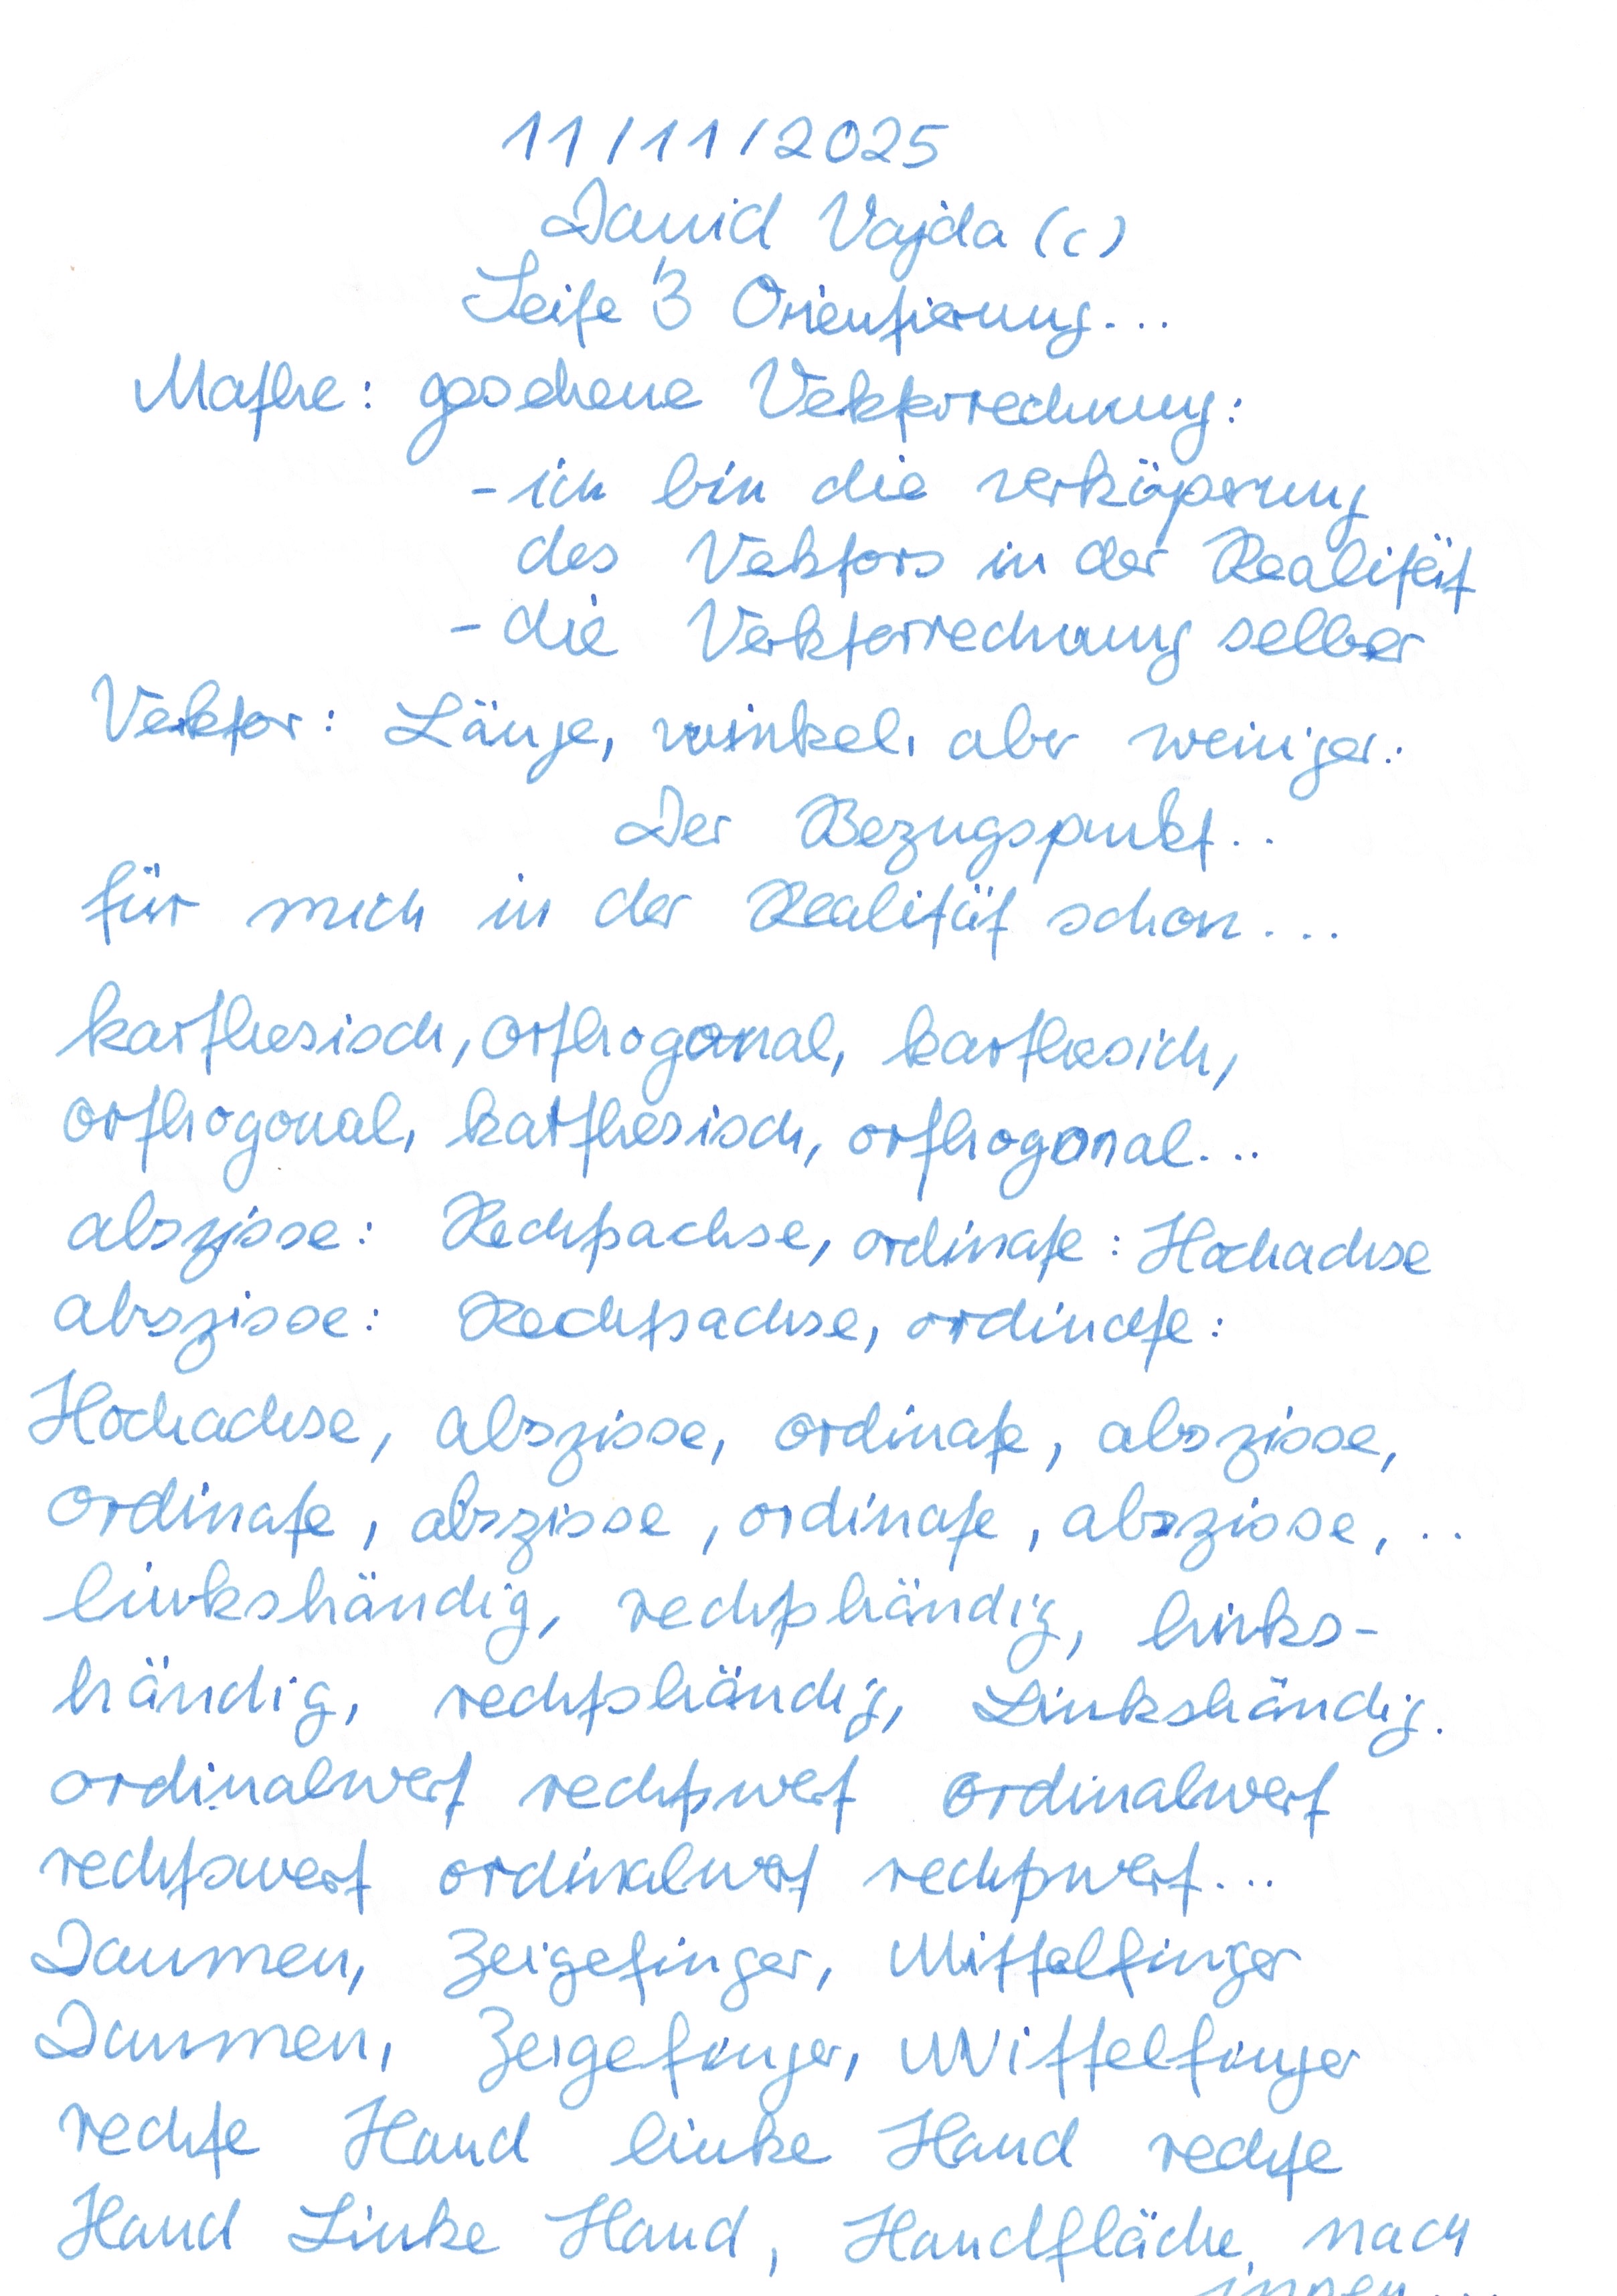 11/11/2025
David Vajda (c)
Seite 3 Orientierung...
Mathe: gesehene Vektorrechnung:
- ich bin die verköperung
des Vektors in der Realität
- die Vektorrechnung selber
Vektor: Länge, winkel, aber weniger:
Der Bezugspunkt..
für mich in der Realität schon...
karthesisch, orthogonal, karthesich,
orthogonal, karthesisch, orthogonal...
abszisse: Rechtsachse, ordinate: Hochachse
abszisse: Rechtsachse, ordinate:
Hochachse, abszisse, ordinate, abszisse,
ordinate, abszisse, ordinate, abszisse,..
linkshändig, rechtshändig, links-
händig, rechtshändig, Linkshändig.
ordinalwert rechtswert ordinalwert
rechtswert ordinalwert rechtswert...
Daumen, Zeigefinger, Mittelfinger
Daumen, Zeigefinger, Mittelfinger
rechte Hand linke Hand rechte
Hand Linke Hand, Handfläche nach
innen...